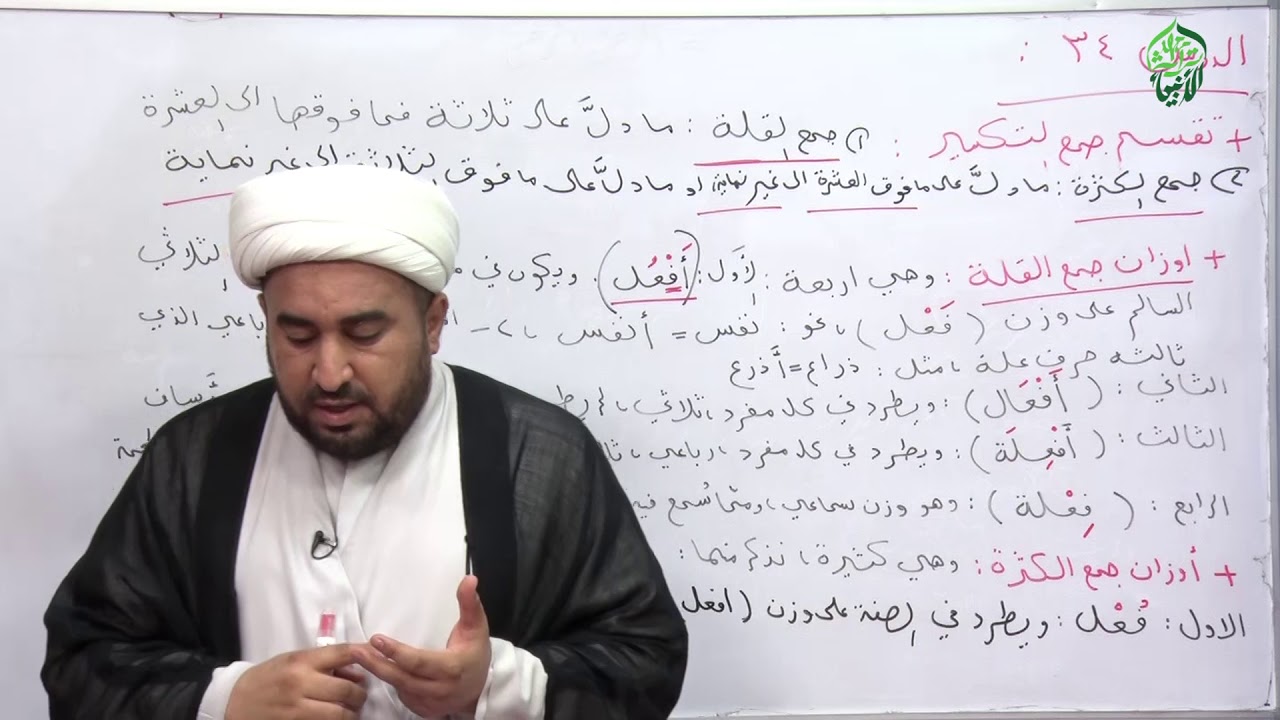 الدرس ٣٤ :
+ تقسيم جمع التكثير : ١) جمع القلة : ما دلَّ على ثلاثة فما فوقها الى العشرة
٢) جمع الكثرة : ما دلَّ على ما فوق العشرة الى غير نهاية، او ما دلَّ على ما فوق الثلاثة الى غير نهاية
+ اوزان جمع القلة : وهي اربعة : الأوَّل : (أَفْعُل). ويكون في الثلاثي
السالم على وزن (فَعْل)، نحو : نفس = أنفس ،٢- الذي
ثالثه حرف علة، مثل : ذراع = أذرع
الثاني : (أَفْعَال) : ويطرد في كل مفرد، ثلاثي،
الثالث : (أَفْعِلَة) : ويطرد في كل مفرد، رباعي،
الرابع : (فِعْلة) : وهو وزن سماعي، وممّا سُمع فيه
+ أوزان جمع الكثرة : وهي كثيرة، نذكر منها :
الاول : فُعْل : ويطرد في الصفة على وزن (افعل